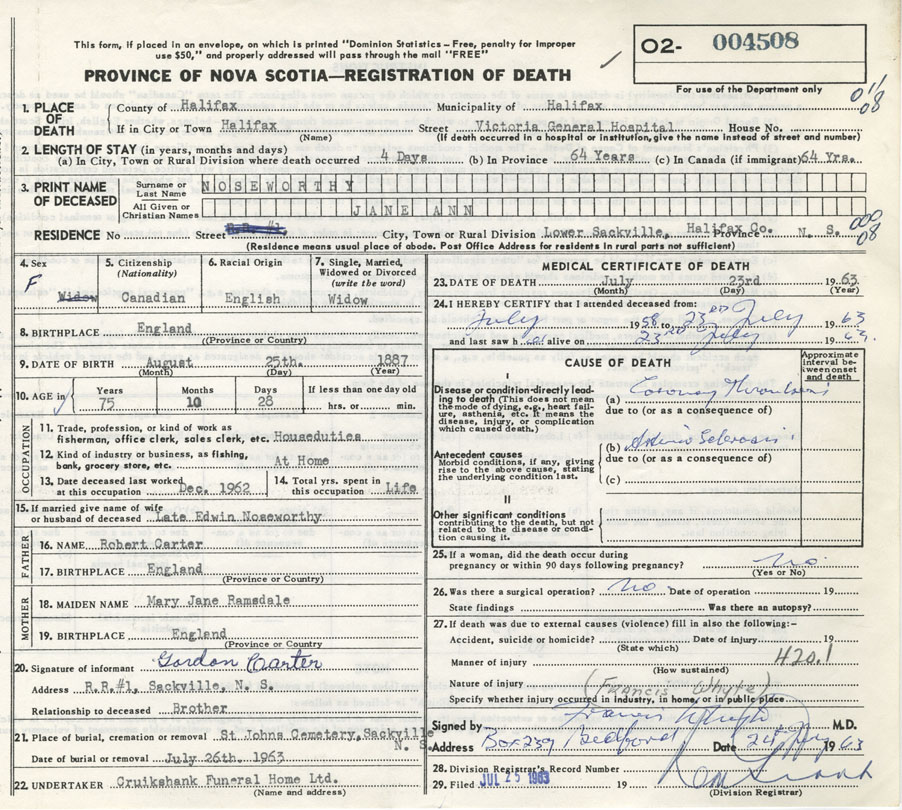 This form, if placed in an envelope, on which is printed "Dominion Statistics – Free, penalty for improper
use $50," and properly addressed will pass through the mail "FREE"
O2- 004508
For use of the Department only
PROVINCE OF NOVA SCOTIA—REGISTRATION OF DEATH
1. PLACE OF DEATH
County of Halifax Municipality of Halifax
If in City or Town Halifax Street Victoria General Hospital House No.
(Name) (If death occurred in a hospital or institution, give the name instead of street and number)
2. LENGTH OF STAY (in years, months and days)
(a) In City, Town or Rural Division where death occurred 4 Days (b) In Province 64 Years (c) In Canada (if immigrant) 64 Yrs.
3. PRINT NAME OF DECEASED
Surname or Last Name NOSEWORTHY
All Given or Christian Names JANE ANN
RESIDENCE No Street R.R.#1 City, Town or Rural Division Lower Sackville, Halifax Co. Province N. S.
(Residence means usual place of abode. Post Office Address for residents in rural parts not sufficient)
4. Sex F Widow
5. Citizenship (Nationality) Canadian
6. Racial Origin English
7. Single, Married, Widowed or Divorced (write the word) Widow
8. BIRTHPLACE England
((Province or Country)
9. DATE OF BIRTH August 25th. 1887
(Month) (Day) (Year)
10. AGE in Years 75 Months 10 Days 28 If less than one day old hrs. or min.
OCCUPATION
11. Trade, profession, or kind of work as
fisherman, office clerk, sales clerk, etc. Houseduties
12. Kind of industry or business, as fishing,
bank, grocery store, etc. At Home
13. Date deceased last worked at this occupation Dec. 1962
14. Total yrs. spent in this occupation Life
15. If married give name of wife
or husband of deceased Late Edwin Noseworthy
FATHER
16. NAME Robert Carter
17. BIRTHPLACE England
(Province or Country)
MOTHER
18. MAIDEN NAME Mary Jane Ramsdale
19. BIRTHPLACE England
(Province or Country
20. Signature of informant Gordon Carter
Address R.R.#1, Sackville, N. S.
Relationship to deceased Brother
21. Place of burial, cremation or removal St Johns Cemetery, Sackville
N. S.
Date of burial or removal July 26th. 1963
22. UNDERTAKER Cruikshank Funeral Home Ltd.
(Name and address)
MEDICAL CERTIFICATE OF DEATH
23. DATE OF DEATH July 23rd 1963
(Month) (Day) (Year)
24. I HEREBY CERTIFY that I attended deceased from:
July 1958 to 23RD July 1963
and last saw h alive on 23RD July 1963.
CAUSE OF DEATH
Approximate interval between onset and death
I
Disease or condition directly leading to death (This does not mean the mode of dying, e.g., heart failure, asthenia, etc. It means the disease, injury, or complication which caused death.)
(a) Coronary Thrombosis
due to (or as a consequence of)
Antecedent causes
Morbid conditions, if any, giving rise to the above cause, stating the underlying condition last.
(b) Arterio Sclerosis.
due to (or as a consequence of)
(c)
II
Other significant conditions
contributing to the death, but not related to the disease or condition causing it.
25. If a woman, did the death occur during
pregnancy or within 90 days following pregnancy? no
(Yes or No)
26. Was there a surgical operation? no Date of operation 19
State findings Was there an autopsy?
27. If death was due to external causes (violence) fill in also the following:–
Accident, suicide or homicide? Date of injury 19
(State which)
Manner of injury 420.1
(How sustained)
Nature of injury
(Francis Whyte)
Specify whether injury occurred in industry, in home, or in public place
Signed by Francis Whyte M.D.
Address Box 239 Bedford Date 24 July 1963
28. Division Registrar's Record Number
29. Filed JUL 25 1963 19
(Division Registrar)